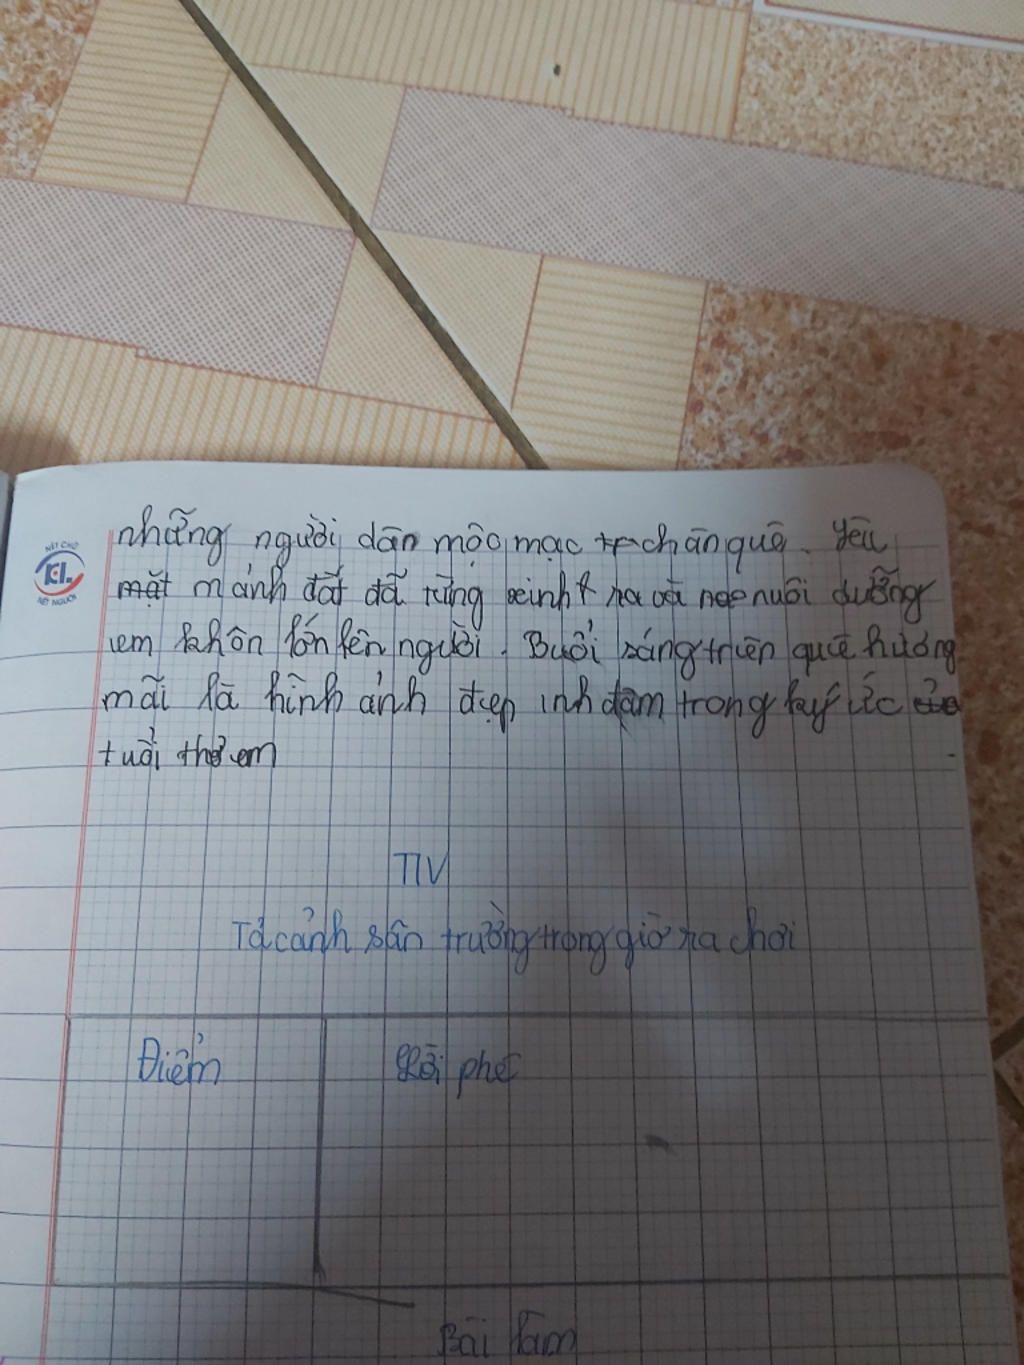 NÉT CHỮ
KL
NẾT NGƯỜI
những người dân mộc mạc chân quê. Yêu
mảnh đất đã từng sinh ra và nuôi dưỡng
em khôn lớn lên người. Buổi sáng trên quê hương
mãi là hình ảnh đẹp inh đậm trong ký ức
tuổi thơ em
TLV
Tả cảnh sân trường trong giờ ra chơi
Điểm
Lời phê
Bài làm